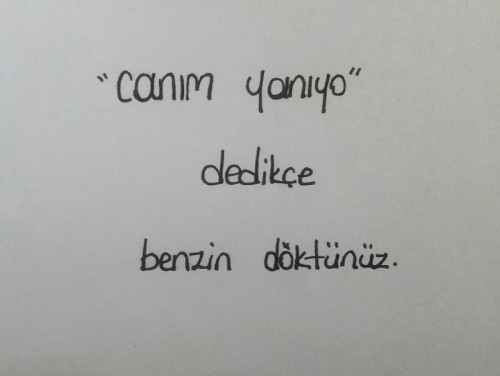 "canım yanıyo"
dedikçe
benzin döktünüz.